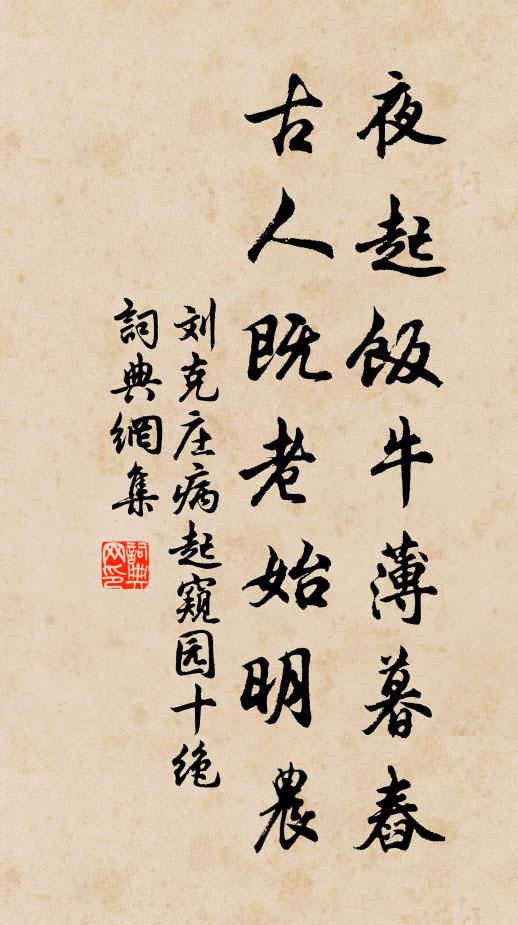 夜起飯牛薄暮舂
古人既老始明農
刘克庄病起窺园十绝
詞典網集
詞典网印